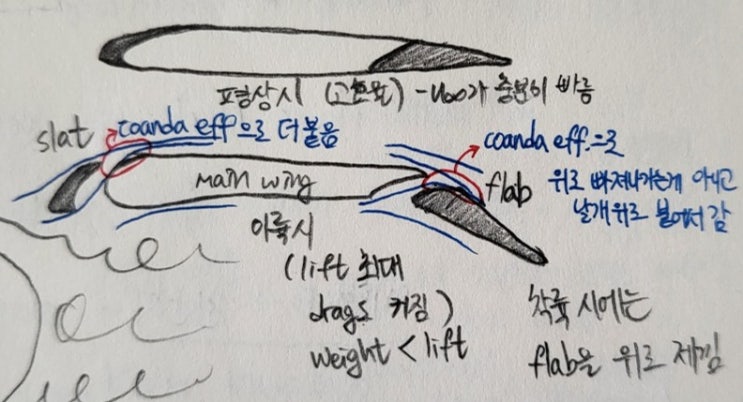 평상시 (고효율) - U∞가 충분히 빠름
slat
coanda eff으로 더 붙음
main wing
coanda eff.으로
flab
위로 빠져나가는게 아니고
날개위로 붙어서 감
이륙시
(lift 최대
drag도 커짐)
weight < lift
착륙 시에는
flab을 위로 제낌